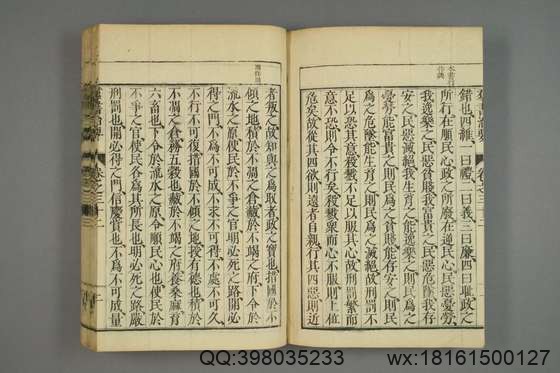 本書行
作興
錯也四維一曰禮二曰義三曰廉四曰恥政之
所行在順民心政之所廢在逆民心民惡憂勞
我逸樂之民惡貧賤我富貴之民惡危墜我存
安之民惡滅絕我生育之能逸樂之則民爲之
憂勞能富貴之則民爲之貧賤能存安之則民
爲之危墜能生育之則民爲之滅絕故刑罰不
足以恐其意殺戮不足以服其心故刑罰繁而
意不恐則令不行矣殺戮衆而心不服則上位
危矣故從其四欲則遠者自親行其四惡則近
者叛之故知與之爲取者政之寶也措國於不
傾之地積於不涸之倉藏於不竭之府下令於
流水之原使民於不爭之官明必死之路開必
得之門不爲不可成不求不可得不處不可久
不行不可復措國於不傾之地授有德也積於
不涸之倉務五穀也藏於不竭之府養桑麻育
六畜也下令於流水之原令順民心也使民於
不爭之官使民各爲其所長也明必死之路嚴
刑罰也開必得之門信慶賞也不爲不可成量
群書治要 卷之三十二
QQ:398035233
wx:18161500127